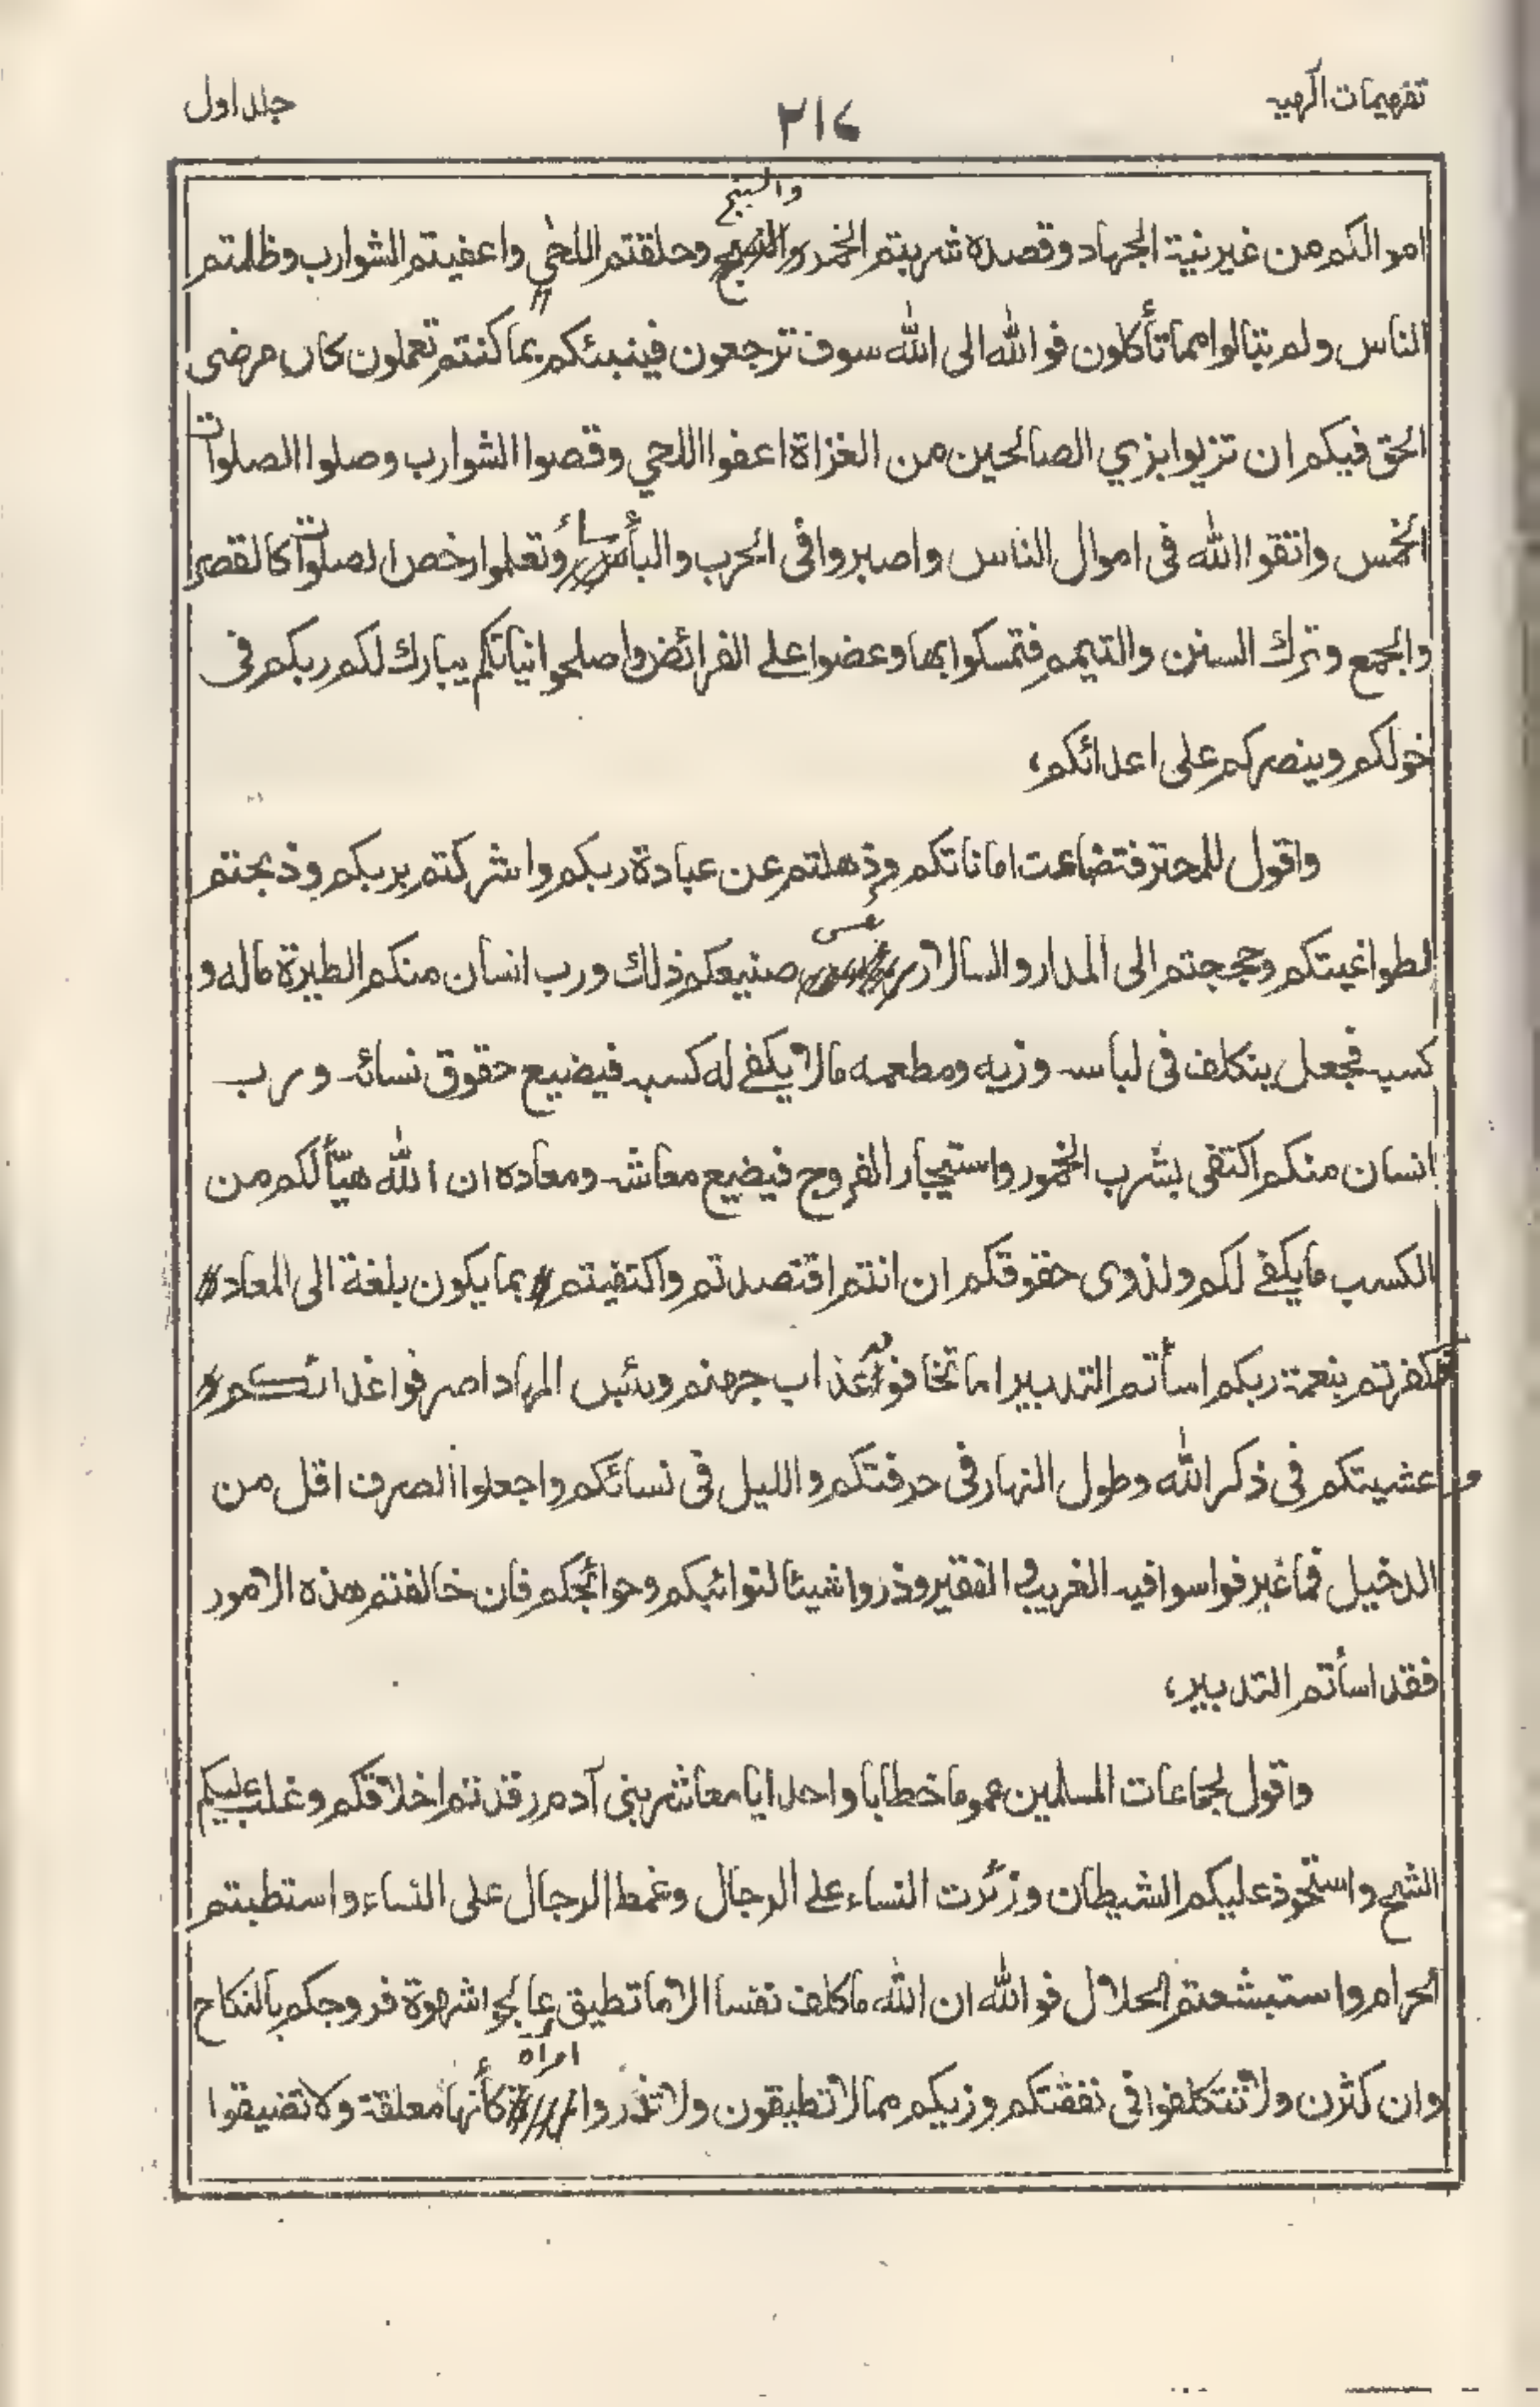 تفهيمات الٰهيه
٢١٧
جلد اول
والبنج
اموالكم من غير نية الجهاد وقصده شربتم الخمر وحلقتم اللحى واعفيتم الشوارب وظلمتم
الناس ولم تبالوا مما تأكلون فوالله الى الله سوف ترجعون فينبئكم بما كنتم تعملون كان مرضى
الحق فيكم ان تزيوا بزي الصالحين من الغزاة اعفوا اللحي وقصوا الشوارب وصلوا الصلوات
الخمس واتقوا الله فى اموال الناس واصبروا فى الحرب والبأساء وتعلموا رخص الصلوات كالقصر
والجمع وترك السنن والتيمم فتمسكوا بها وعضوا على الفرائض واصلحوا نياتكم يبارك لكم ربكم فى
خولكم وينصركم على اعدائكم،
واقول للمحترفة ضاعت اماناتكم وذهلتم عن عبادة ربكم واشركتم بربكم وذبحتم
لطواغيتكم وحججتم الى المدار والسالار صنيعكم ذلك ورب انسان منكم الطيرة ماله و
كسبه فجعل يتكلف فى لباسه وزيه ومطعمه مالا يكفى له كسبه فيضيع حقوق نسائه ورب
انسان منكم اكتفى بشرب الخمور واستيجار الفروج فيضيع معاشه ومعاده ان الله هيّأ لكم من
الكسب ما يكفى لكم ولذوى حقوقكم ان انتم اقتصدتم واكتفيتم بما يكون بلغة الى المعاد
فكفرتم بنعمة ربكم اسأتم التدبير اما تخافون عذاب جهنم وبئس المهاد اصرفوا غدائكم
وعشيتكم فى ذكر الله وطول النهار فى حرفتكم والليل فى نسائكم واجعلوا الصرف اقل من
الدخيل فما غبر فواسوا فيه الغريب و الفقير وذروا شيئا لنوائبكم وحوائجكم فان خالفتم هذه الامور
فقد اسأتم التدبير،
واقول لجماعات المسلمين عموما خطابا واحدا يا معاشر بنى آدم رقدتم اخلاقكم وغلب عليكم
الشح واستحوذ عليكم الشيطان وزئرت النساء على الرجال وغمط الرجال على النساء واستطبتم
الحرام واستبشعتم الحلال فوالله ان الله ما كلف نفسا الا ما تطيق عالجوا شهوة فروجكم بالنكاح
امرأة
وان كثرن ولا تتكلفوا فى نفقتكم وزيكم مما لا تطيقون ولا تذروا كأنها معلقة ولا تضيقوا